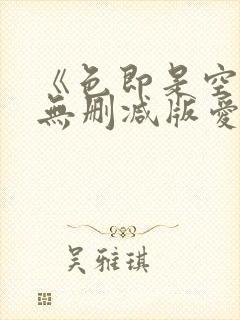 《色即是空
無删减版愛
吴雅琪